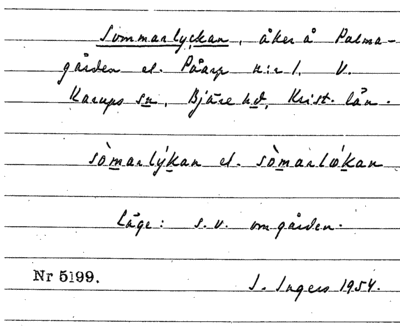 Sommarlyckan, åker å Palma-
gården el. Påarp n:r 1, V.
Karups sn, Bjäre hd, Krist. län.
sòmarlýkan el. sòmarlớkan
Läge: s.v. om gården.
Nr 5199. I. Ingers 1954.